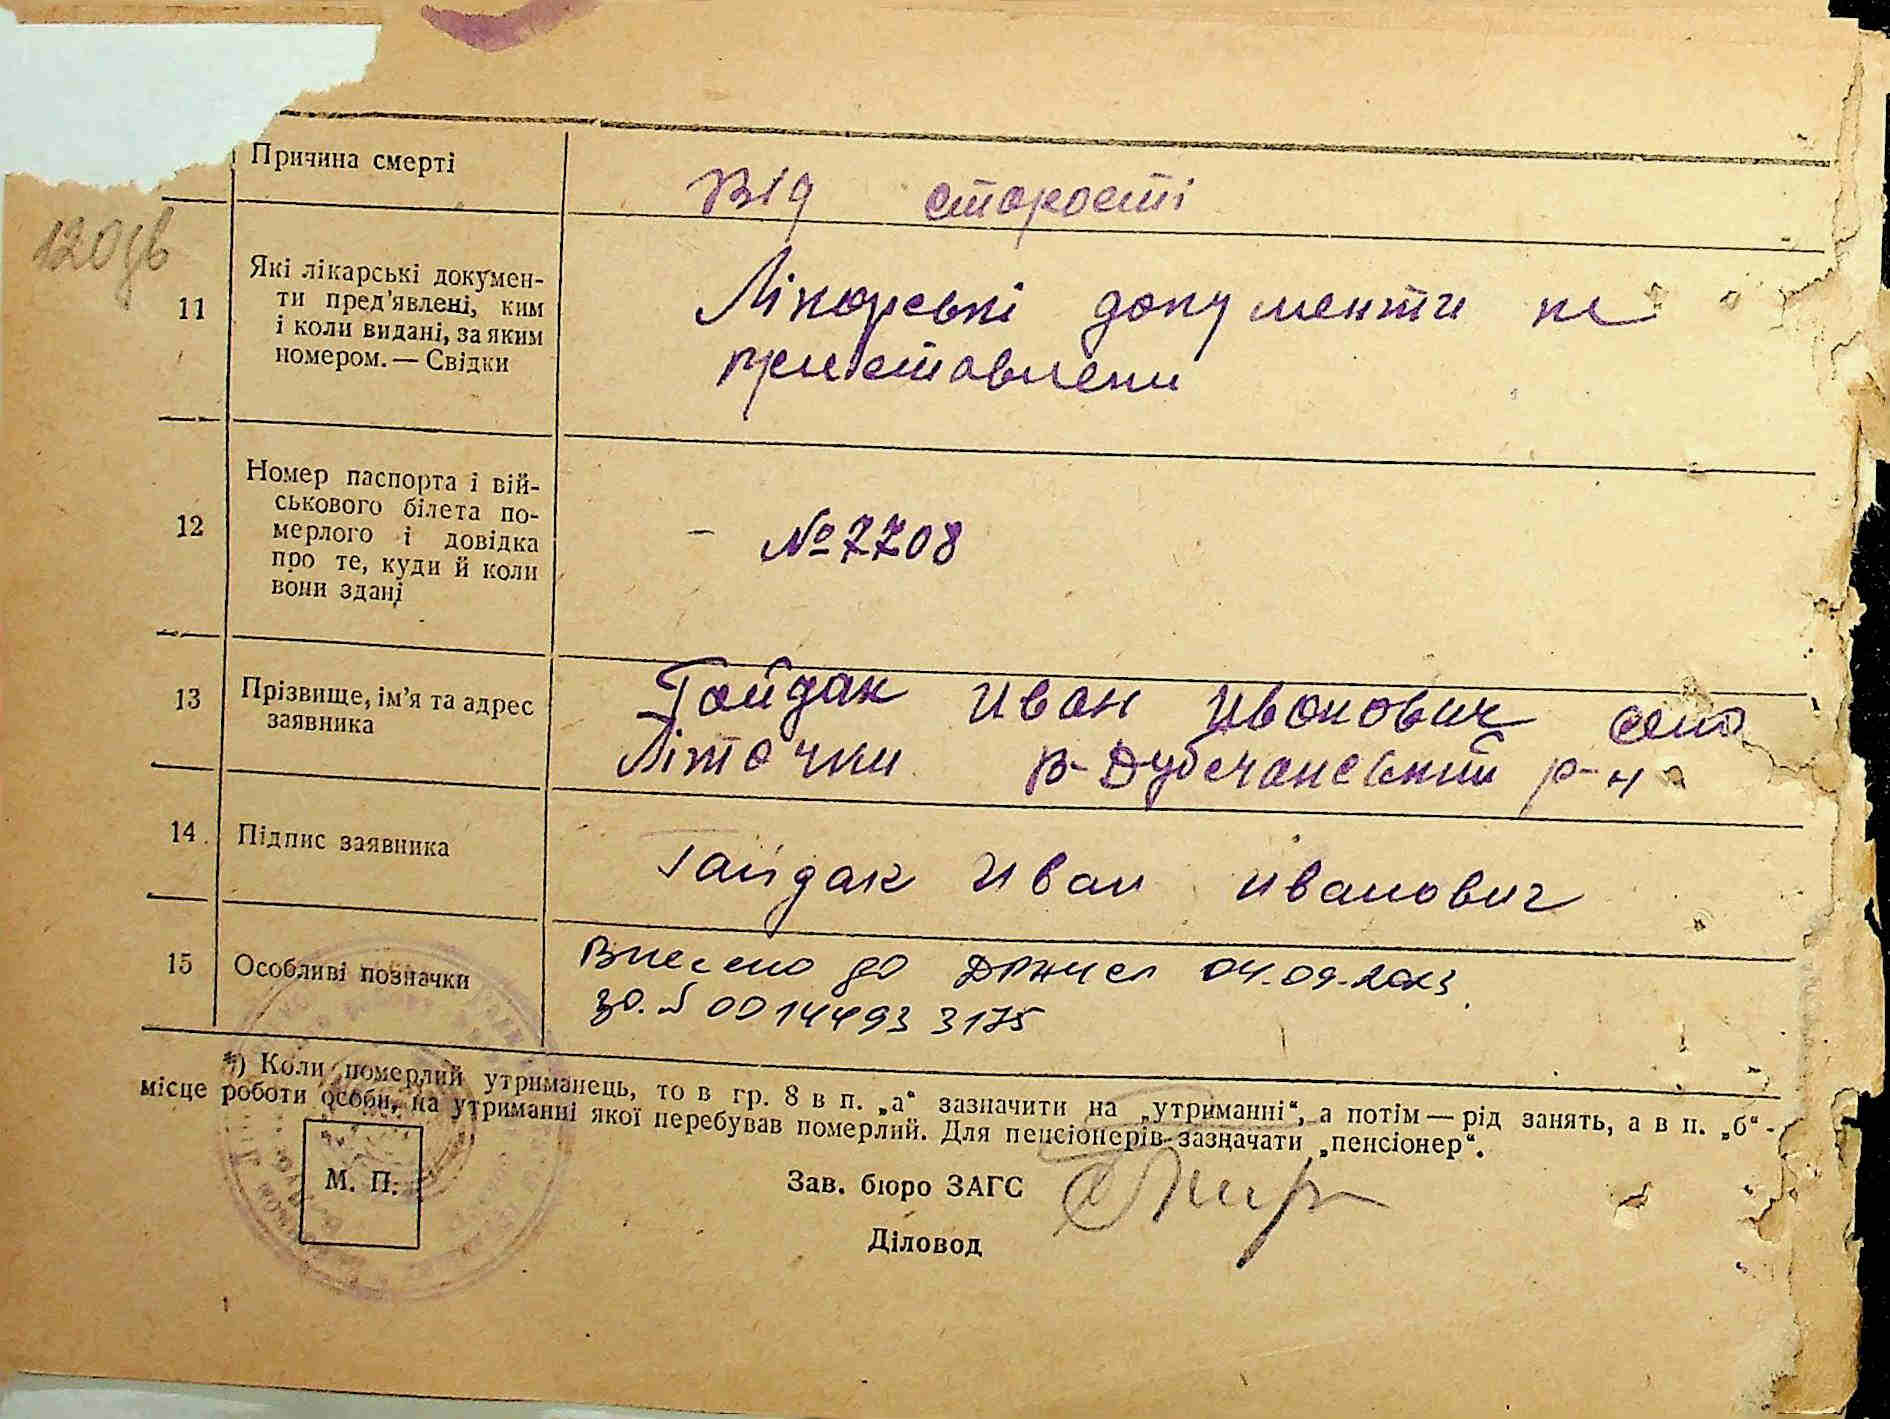 Причина смерті
Від старості
120зв
11
Які лікарські докумен-
ти пред'явлені, ким
і коли видані, за яким
номером. — Свідки
Лікарські документи не
приставлени
12
Номер паспорта і вій-
ськового білета по-
мерлого і довідка
про те, куди й коли
вони здані
- № 7708
13
Прізвище, ім'я та адрес
заявника
Гайдак Иван Иванович село
Літочки В-Дубечанський р-н
14
Підпис заявника
Гайдак Иван Иванович
15
Особливі позначки
Внесено до ДРАЦС 04.09.2023
за № 00144933175
*) Коли померлий утриманець, то в гр. 8 в п. „а“ зазначити на „утриманні“, а потім — рід занять, а в п. „б“ -
місце роботи особи, на утриманні якої перебував померлий. Для пенсіонерів зазначати „пенсіонер“.
М. П.
Зав. бюро ЗАГС
Діловод